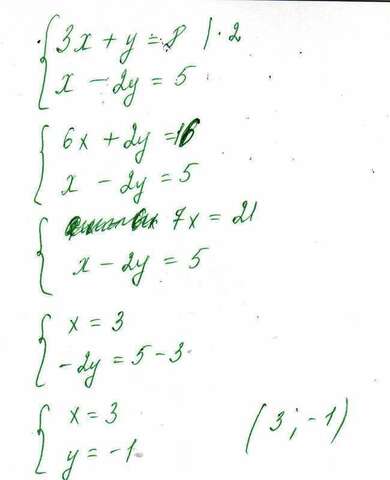 3x + y = 8 | · 2
x - 2y = 5
6x + 2y = 16
x - 2y = 5
7x = 21
x - 2y = 5
x = 3
-2y = 5 - 3
x = 3
y = -1
(3 ; -1)